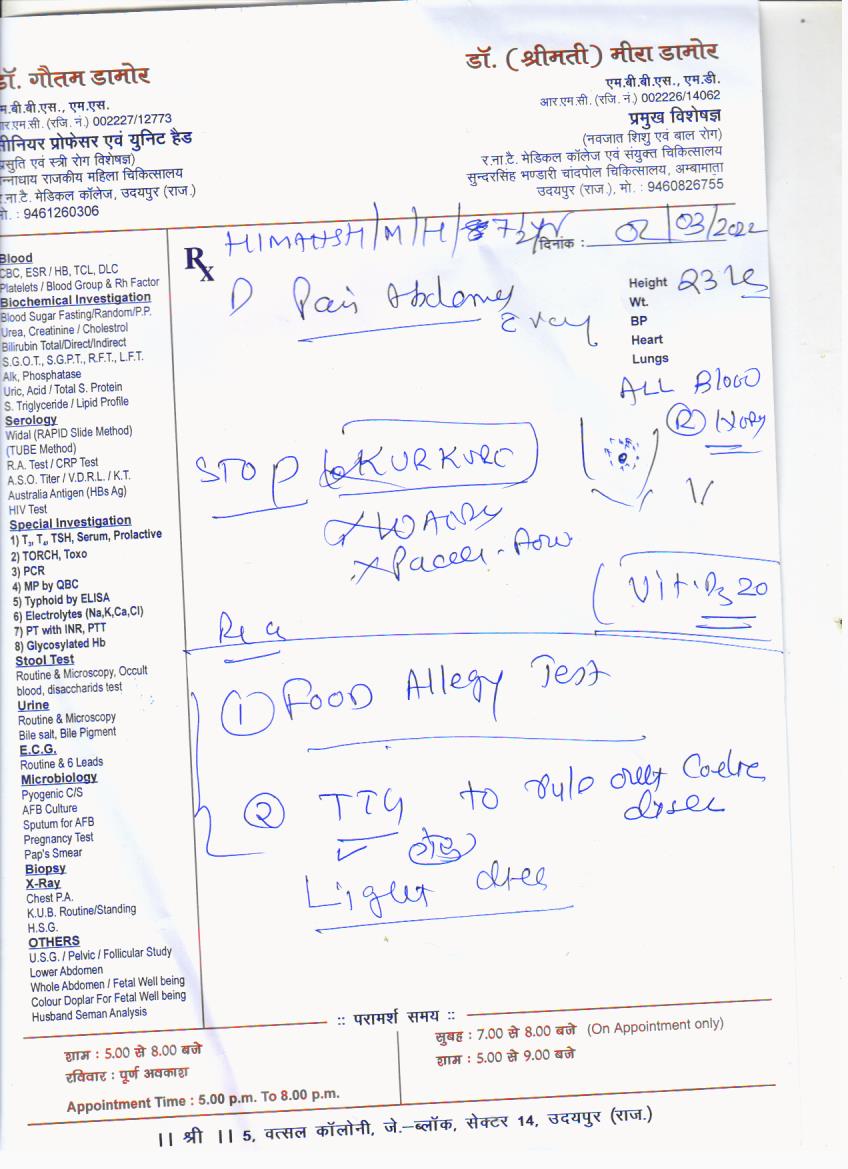 डॉ. गौतम डामोर
एम.बी.बी.एस., एम.एस.
आर.एम.सी. (रजि. नं.) 002227/12773
सीनियर प्रोफेसर एवं युनिट हैड
(प्रसुति एवं स्त्री रोग विशेषज्ञ)
पन्नाधाय राजकीय महिला चिकित्सालय
र.ना.टै. मेडिकल कॉलेज, उदयपुर (राज.)
मो. : 9461260306
डॉ. (श्रीमती) मीरा डामोर
एम.बी.बी.एस., एम.डी.
आर.एम.सी. (रजि. नं.) 002226/14062
प्रमुख विशेषज्ञ
(नवजात शिशु एवं बाल रोग)
र.ना.टै. मेडिकल कॉलेज एवं संयुक्त चिकित्सालय
सुन्दरसिंह भण्डारी चांदपोल चिकित्सालय, अम्बामाता
उदयपुर (राज.), मो. : 9460826755
Rx
HIMANSH/M/H/
दिनांक : 02/03/2022
Pain Abdomen
Height 23
Wt.
BP
Heart
Lungs
ALL BLOOD
STOP KURKURE
Vit. D3 20
① FOOD Allegy Test
② TTG to rule out
गेहु
Light
Blood
CBC, ESR / HB, TCL, DLC
Platelets / Blood Group & Rh Factor
Biochemical Investigation
Blood Sugar Fasting/Random/P.P.
Urea, Creatinine / Cholestrol
Bilirubin Total/Direct/Indirect
S.G.O.T., S.G.P.T., R.F.T., L.F.T.
Alk, Phosphatase
Uric, Acid / Total S. Protein
S. Triglyceride / Lipid Profile
Serology
Widal (RAPID Slide Method)
(TUBE Method)
R.A. Test / CRP Test
A.S.O. Titer / V.D.R.L. / K.T.
Australia Antigen (HBs Ag)
HIV Test
Special Investigation
1) T₃, T₄, TSH, Serum, Prolactive
2) TORCH, Toxo
3) PCR
4) MP by QBC
5) Typhoid by ELISA
6) Electrolytes (Na,K,Ca,Cl)
7) PT with INR, PTT
8) Glycosylated Hb
Stool Test
Routine & Microscopy, Occult
blood, disaccharids test
Urine
Routine & Microscopy
Bile salt, Bile Pigment
E.C.G.
Routine & 6 Leads
Microbiology
Pyogenic C/S
AFB Culture
Sputum for AFB
Pregnancy Test
Pap's Smear
Biopsy
X-Ray
Chest P.A.
K.U.B. Routine/Standing
H.S.G.
OTHERS
U.S.G. / Pelvic / Follicular Study
Lower Abdomen
Whole Abdomen / Fetal Well being
Colour Doplar For Fetal Well being
Husband Seman Analysis
:: परामर्श समय ::
शाम : 5.00 से 8.00 बजे
रविवार : पूर्ण अवकाश
Appointment Time : 5.00 p.m. To 8.00 p.m.
सुबह : 7.00 से 8.00 बजे (On Appointment only)
शाम : 5.00 से 9.00 बजे
|| श्री || 5, वत्सल कॉलोनी, जे.–ब्लॉक, सेक्टर 14, उदयपुर (राज.)